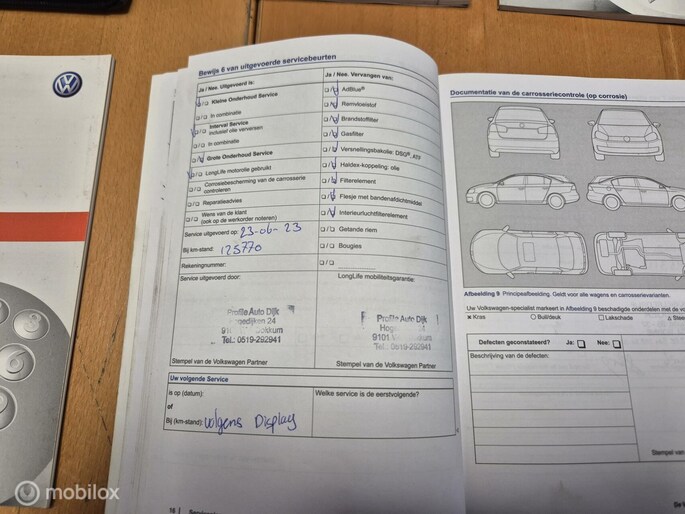 Bewijs 6 van uitgevoerde servicebeurten
Ja / Nee. Uitgevoerd is:
Kleine Onderhoud Service
In combinatie
Interval Service
inclusief olie verversen
In combinatie
Grote Onderhoud Service
LongLife motorolie gebruikt
Corrosiebescherming van de carrosserie
controleren
Reparatieadvies
Wens van de klant
(ook op de werkorder noteren)
Service uitgevoerd op: 23-06-23
Bij km-stand: 125770
Rekeningnummer:
Service uitgevoerd door:
Profile Auto Dijk
24
Tel.: 0519-292941
Stempel van de Volkswagen Partner
Ja / Nee. Vervangen van:
AdBlue®
Remvloeistof
Brandstoffilter
Gasfilter
Versnellingsbakolie: DSG®, ATF
Haldex-koppeling: olie
Filterelement
Flesje met bandenafdichtmiddel
Interieurluchtfilterelement
Getande riem
Bougies
LongLife mobiliteitsgarantie:
Profile Auto Dijk
9101
Tel.: 0519-292941
Stempel van de Volkswagen Partner
Uw volgende Service
is op (datum):
of
Bij (km-stand): volgens Display
Welke service is de eerstvolgende?
Documentatie van de carrosseriecontrole (op corrosie)
Afbeelding 9 Principeafbeelding. Geldt voor alle wagens en carrosserievarianten.
Uw Volkswagen-specialist markeert in Afbeelding 9 beschadigde onderdelen met de
Kras Buil/deuk Lakschade
Defecten geconstateerd? Ja: Nee:
Beschrijving van de defecten:
Stempel van
16
mobilox